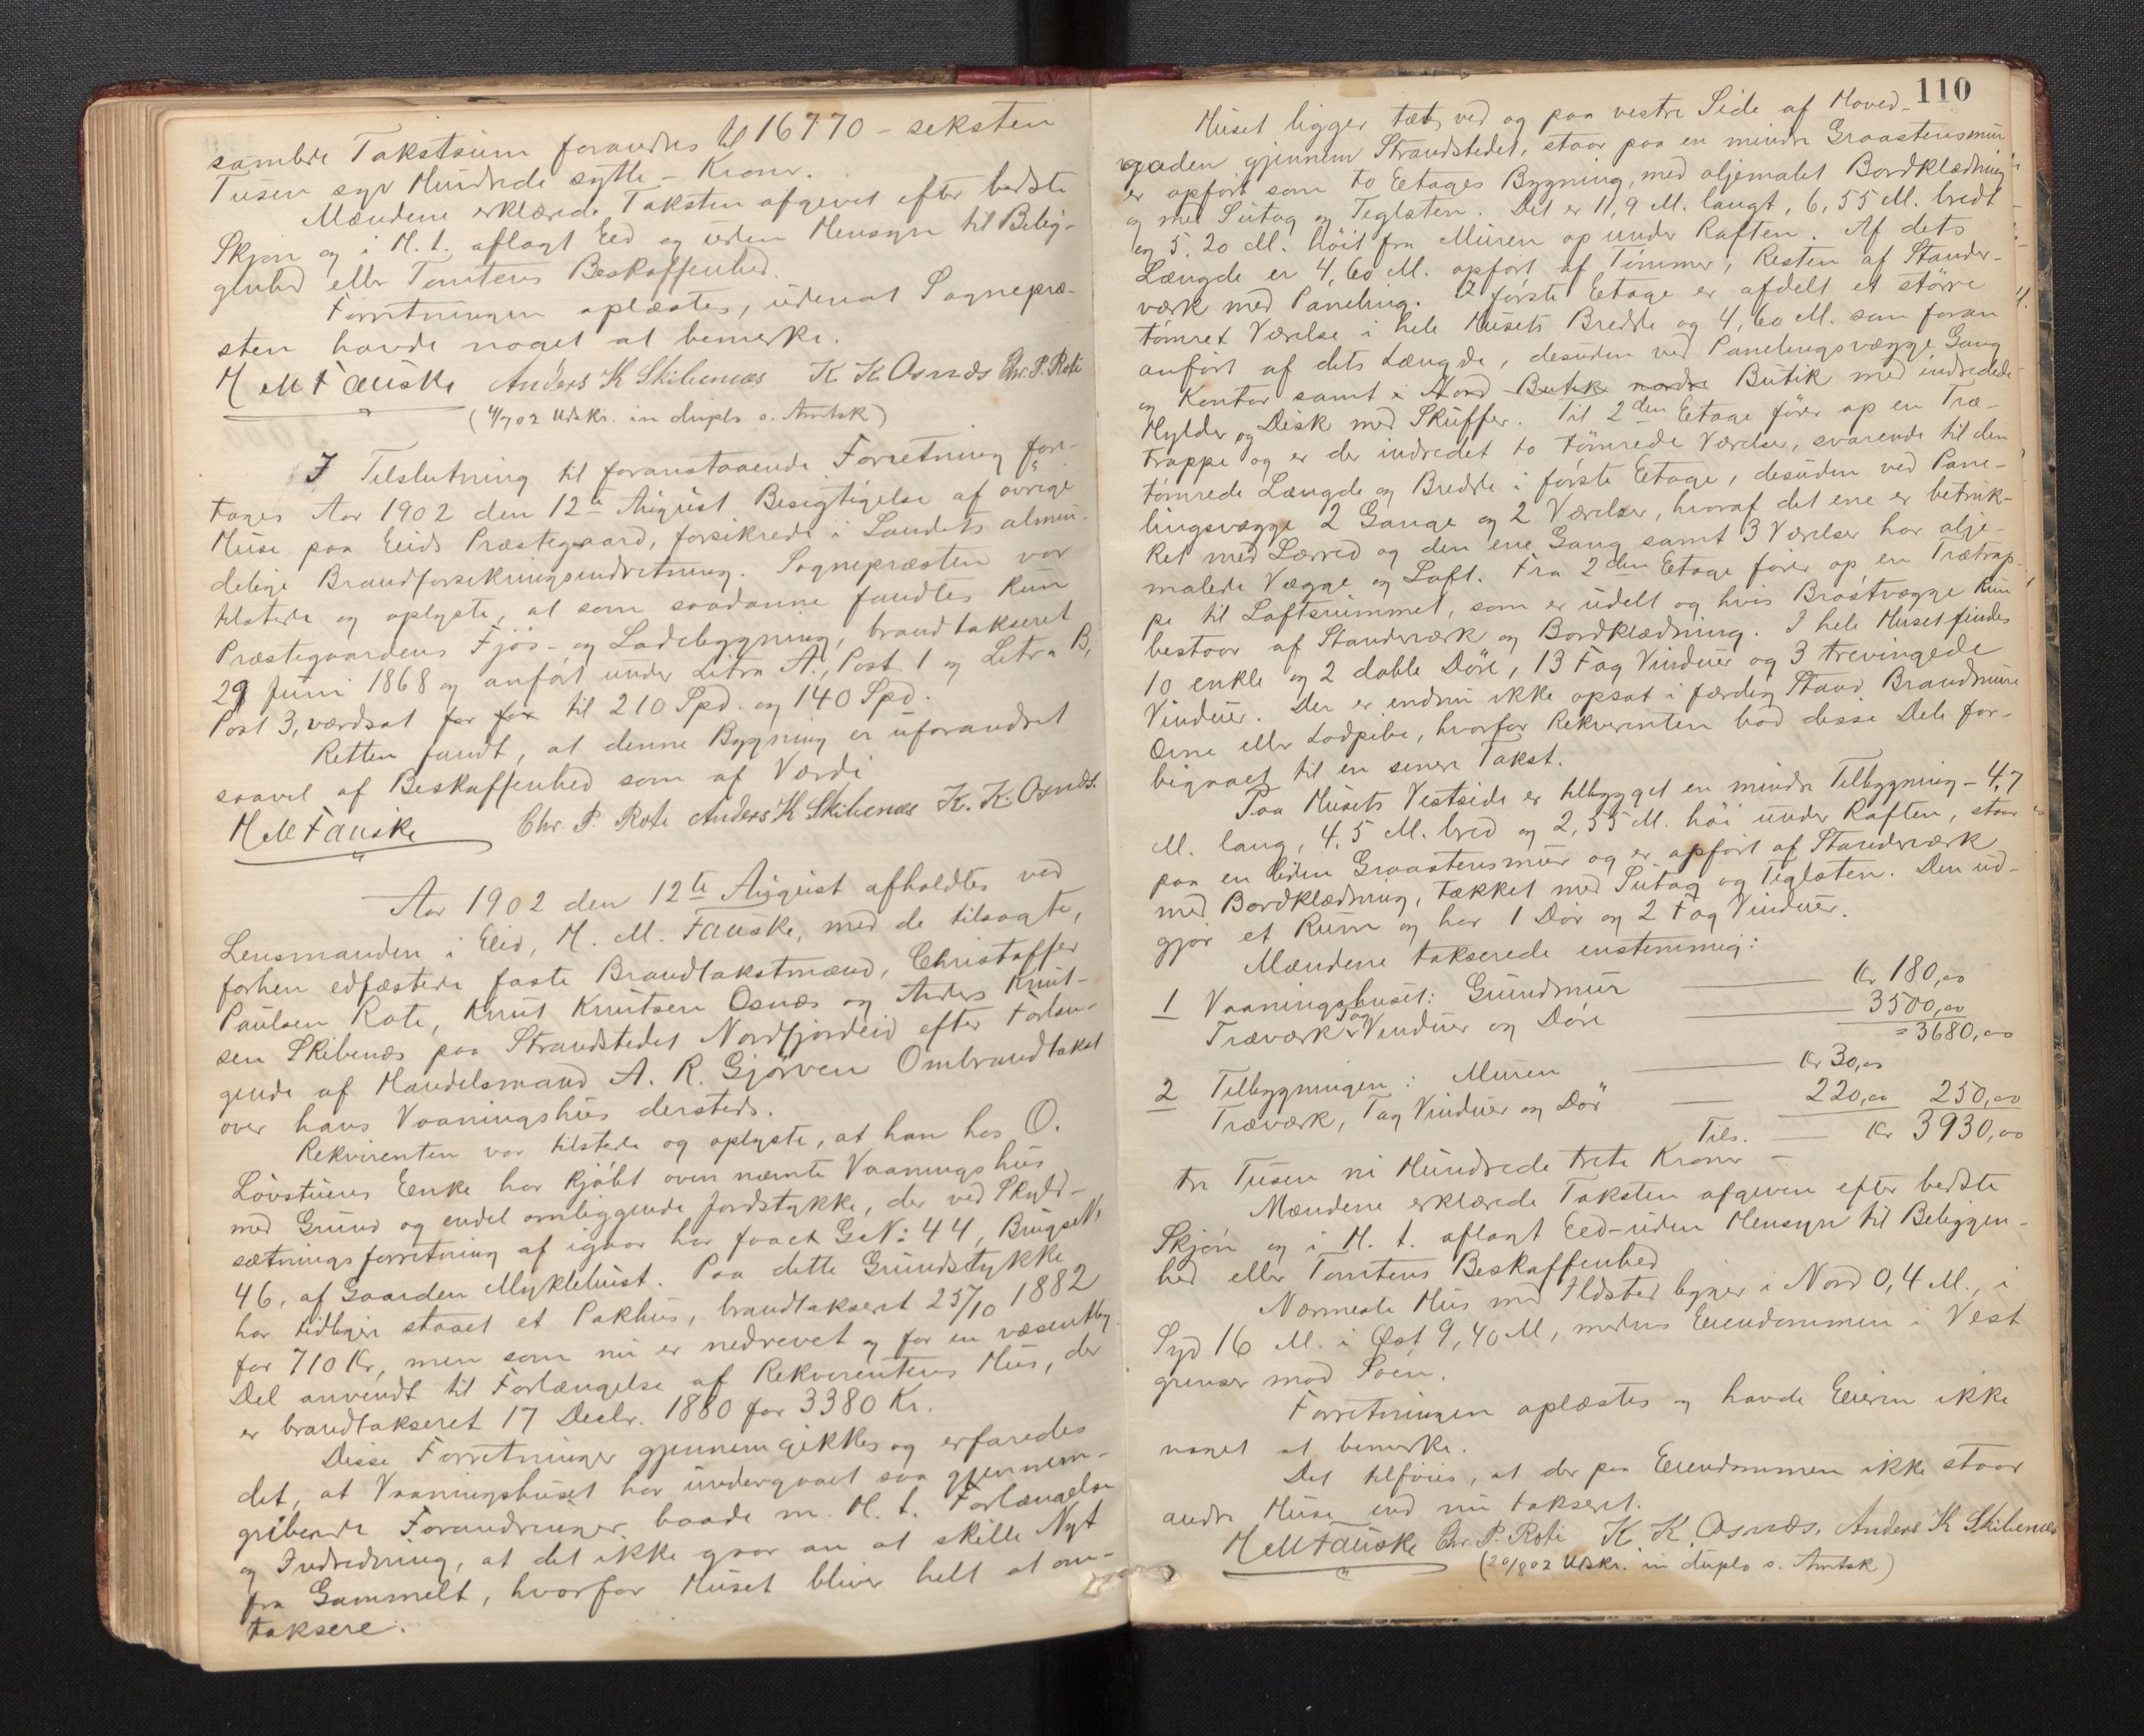 samlede Takstsum forandres til 16770 – seksten
Tusen syv Hundrede sytti – Kroner.
Mændene erklærede Taksten afgivet efter bedste
Skjøn og i H. t. aflagt Eed og uden Hensyn til Belig-
genhed eller Tomtens Beskaffenhed.
Forretningen oplæstes, udenat Sognepræ-
sten havde noget at bemerke.
H M Fauske Anders K Skibenæs K. K. Osnæs Chr. P. Roti
(4/7 02 Udskr. in duplo s. Amtsk)
I Tilslutning til foranstaaende Forretning fore-
toges Aar 1902 den 12te August Besigtigelse af øvrige
Huse paa Eids Præstegaard, forsikrede i Landets almin-
delige Brandforsikringsindretning. Sognepræsten var
tilstede og oplyste, at som saadanne fandtes kun
Præstegaardens Fjøs- og Ladebygning, brandtakseret
29 Juni 1868 og anført under Litra A, Post 1 og Litra B,
Post 3, værdsat for for til 210 Spd. og 140 Spd.
Retten fandt, at denne Bygning er uforandret
saavel af Beskaffenhed som af Værdi
H M Fauske Chr. P. Roti Anders K Skibenæs K. K. Osnæs.
Aar 1902 den 12te August afholdtes ved
Lensmanden i Eid, H. M. Fauske, med de tilsagte,
forhen edfæstede faste Brandtakstmænd, Christoffer
Paulsen Rote, Knut Knutsen Osnæs og Anders Knut-
sen Skibenæs paa Strandstedet Nordfjordeid efter Forlan-
gende af Handelsmand A. R. Gjørven Ombrandtakst
over hans Vaaningshus dersteds.
Rekvirenten var tilstede og oplyste, at han hos O.
Løvstuens Enke har kjøbt oven nævnte Vaaningshus
med Grund og endel omliggende Jordstykke, der ved Skyld-
sætningsforretning af igaar har faaet G.No: 44, BrugsNo
46, af Gaarden Myklebust. Paa dette Grundstykke
har tidligere staaet et Pakhus, brandtakseret 25/10 1882
for 710 Kr, men som nu er nedrevet og for en væsentlig
Del anvendt til Forlængelse af Rekvirentens Hus, der
er brandtakseret 17 Decbr. 1880 for 3380 Kr.
Disse Forretninger gjennemgikkes og erfaredes
det, at Vaaningshuset har undergaaet saa gjennem-
gribende Forandringer baade m. H. t. Forlængelse
og Indredning, at det ikke gaar an at skille Nyt
fra Gammelt, hvorfor Huset bliver helt at om-
taksere.
110
Huset ligger tæt ved og paa vestre Side af Hoved-
gaden gjennem Strandstedet, staar paa en mindre Graastensmur
er opført som to Etages Bygning, med oljemalet Bordklædning
og med Sutag og Teglsten. Det er 11,9 M. langt, 6,55 M. bredt
og 5,20 M. høit fra Muren op under Raften. Af dets
Længde er 4,60 M. opført af Tømmer, Resten af Stander-
værk med Paneling. I første Etage er afdelt et større
tømret Værelse i hele Husets Bredde og 4,60 M. som foran
anført af dets Længde, desuden ved Panelingsvægge Gang
og Kontor samt i Nord Butik nordre Butik med indredede
Hylder og Disk med Skuffer. Til 2den Etage fører op en Træ-
trappe og er der indredet to tømrede Værelser, svarende til den
tømrede Længde og Bredde i første Etage, desuden ved Pane-
lingsvægge 2 Gange og 2 Værelser, hvoraf det ene er betruk-
ket med Lærred og den ene Gang samt 3 Værelser har olje-
malede Vægge og Loft. Fra 2den Etage fører op en Trætrap-
pe til Loftsrummet, som er udelt og hvis Brøstvægge kun
bestaar af Standerværk og Bordklædning. I hele Huset findes
10 enkle og 2 doble Døre, 13 Fag Vinduer og 3 trevingede
Vinduer. Der er endnu ikke opsat i færdig Stand Brandmure
Ovne eller Lodpibe, hvorfor Rekvirenten bad disse Dele for-
bigaaet til en senere Takst.
Paa Husets Vestside er tilbygget en mindre Tilbygning – 4,7
M. lang, 4,5 M. bred og 2,55 M. høi under Raften, staar
paa en liden Graastensmur og er opført af Standerværk
med Bordklædning, tækket med Sutag og Teglsten. Den ud-
gjør et Rum og har 1 Dør og 2 Fag Vinduer.
Mændene takserede enstemmig:
1 Vaaningshuset: Grundmur — Kr 180,00
Træværk Tag Vinduer og Døre — 3500,00
= 3680,00
2 Tilbygningen: Muren — Kr 30,00
Træværk, Tag Vinduer og Dør — 220,00 250,00
Tils. — Kr 3930,00
tre Tusen ni Hundrede treti Kroner –
Mændene erklærede Taksten afgiven efter bedste
Skjøn og i H. t. aflagt Eed – uden Hensyn til Beliggen-
hed eller Tomtens Beskaffenhed
Nærmeste Hus med Ildsted ligger i Nord 0,4 M., i
Syd 16 M. i Øst 9,40 M, medens Eiendommen i Vest
grenser mod Søen.
Forretningen oplæstes og havde Eieren ikke
noget at bemerke.
Det tilføies, at der paa Eiendommen ikke staar
andre Huse end nu takseret.
H M Fauske Chr. P. Roti K K. Osnæs. Anders K Skibenæs
(20/8 02 Udskr. in duplo s. Amtsk)